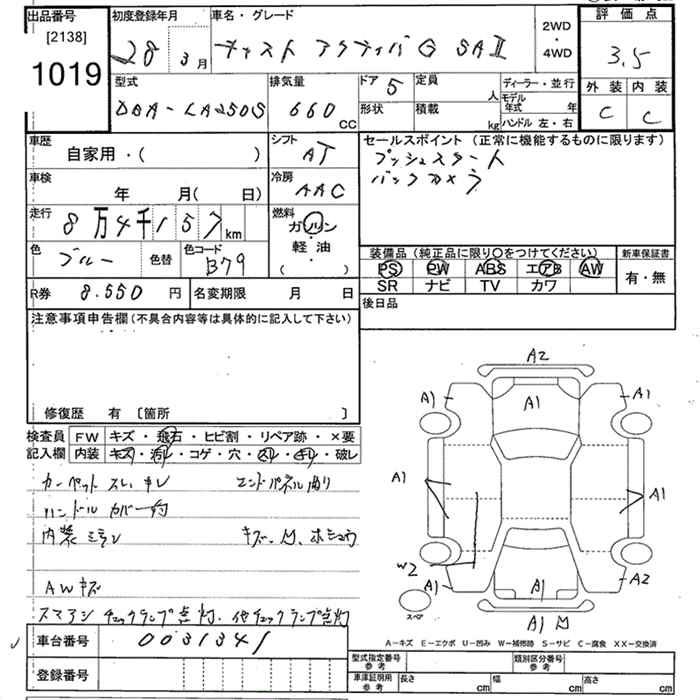 出品番号 初度登録年月 車名・グレード 2WD・4WD 評価点
[2138]
1019
28年 3月 キャスト アクティバG SAⅡ 3.5
型式 排気量 ドア 5 定員 人 ディーラー・並行 外装 内装
DBA-LA250S 660 CC 形状 積載 kg モデル年式 年 ハンドル 左・右 C C
車歴 自家用・( ) シフト AT セールスポイント (正常に機能するものに限ります)
プッシュスタート
バックカメラ
車検 年 月(日) 冷房 AAC
走行 8万4千157km 燃料 ガソリン 軽油 ・( )
色 ブルー 色替 色コード B79
装備品(純正品に限り○をつけてください) 新車保証書
PS PW ABS エアB AW 有・無
SR ナビ TV カワ
R券 8.550 円 名変期限 月 日 後日品
注意事項申告欄(不具合内容等は具体的に記入して下さい)
修復歴 有 [箇所 ]
検査員 FW キズ・飛石・ヒビ割・リペア跡・×要
記入欄 内装 キズ・汚れ・コゲ・穴・スレ・キレ・破レ
カーペット スレ、キレ エンドパネル曲り
ハンドル カバー付
内装ミラレ
AWキズ
スマアシ チェックランプ点灯、他チェックランプ点灯
車台番号 0031341
登録番号
A2
A1 A1 A1
A1 A1
W2
A1 A1 A2
スペア
A1
A-キズ E-エクボ U-凹み W-補修跡 S-サビ C-腐食 XX-交換済
型式指定番号 参考 類別区分番号 参考
車庫証明用 参考 長さ cm 幅 cm 高さ cm